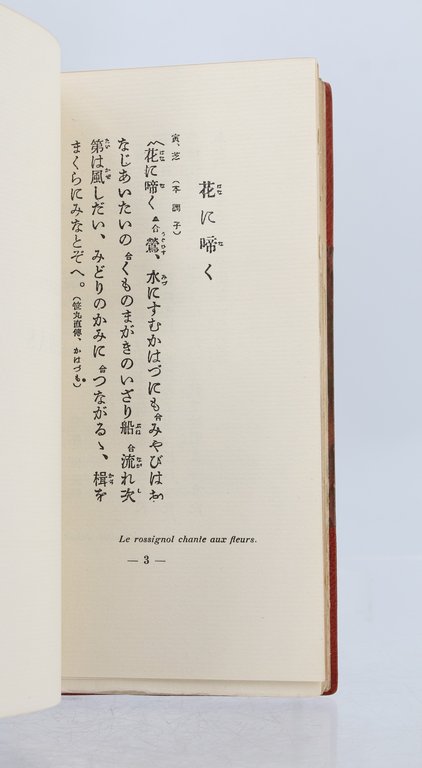 花に啼く
寅、芝 (本調子)
〽花に啼く 合 鶯、水にすむかはづにも 合 みやびはお
なじあいたいの 合 くものまがきのいざり船 合 流れ次
第は風しだい、みどりのかみに 合 つながるゝ、楫を
まくらにみなとぞへ。(笹丸直傳、かはづも。)
Le rossignol chante aux fleurs.
— 3 —